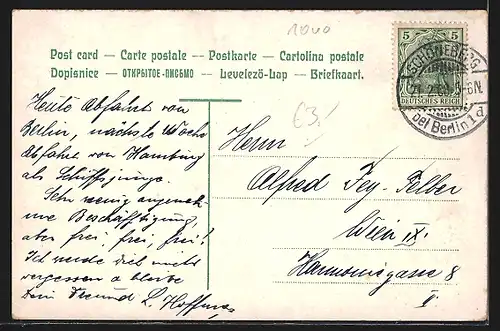 1040
Post card — Carte postale — Postkarte — Cartolina postale
Dopisnice — ОТКРЫТОЕ-ПИСЬМО — Levelező-Lap — Briefkaart.
5 5
DEUTSCHES REICH
SCHÖNEBERG
5-6N.
bei Berlin 1 d
€3.
Heute Abfahrt von
Berlin, nächste Woche
Abfahrt von Hamburg
als Schiffsjunge.
Sehr wenig angeneh
me Beschäftigung,
aber frei, frei, frei!
Ich werde dich nicht
vergessen u bleibe
Dein Freund L. Hoffmann
Herrn
Alfred Fey-Felber
Wien IX.
Harmoniegasse 8